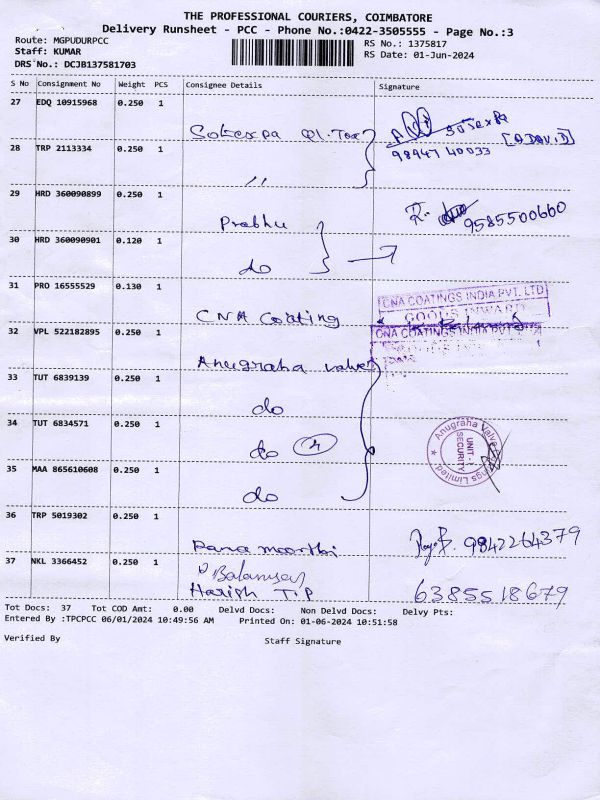 THE PROFESSIONAL COURIERS, COIMBATORE
Delivery Runsheet - PCC - Phone No.:0422-3505555 - Page No.:3
Route: MGPUDURPCC
RS No.: 1375817
Staff: KUMAR
RS Date: 01-Jun-2024
DRS No.: DCJB137581703
S No Consignment No Weight PCS Consignee Details Signature
27 EDQ 10915968 0.250 1
28 TRP 2113334 0.250 1 98947 40033
29 HRD 360090899 0.250 1 Prabhu R. 9585500660
30 HRD 360090901 0.120 1 do
31 PRO 16555529 0.130 1 CNA Coating CNA COATINGS INDIA PVT. LTD
GOODS INWARD
32 VPL 522182895 0.250 1 Anugraha valves CNA COATINGS INDIA PVT
33 TUT 6839139 0.250 1 do
34 TUT 6834571 0.250 1 do 4 Anugraha Valve Limited. UNIT - I SECURITY
35 MAA 865610608 0.250 1 do
36 TRP 5019302 0.250 1 9842264379
37 NKL 3366452 0.250 1
Harish T.P 6385518679
Tot Docs: 37 Tot COD Amt: 0.00 Delvd Docs: Non Delvd Docs: Delvy Pts:
Entered By :TPCPCC 06/01/2024 10:49:56 AM Printed On: 01-06-2024 10:51:58
Verified By Staff Signature